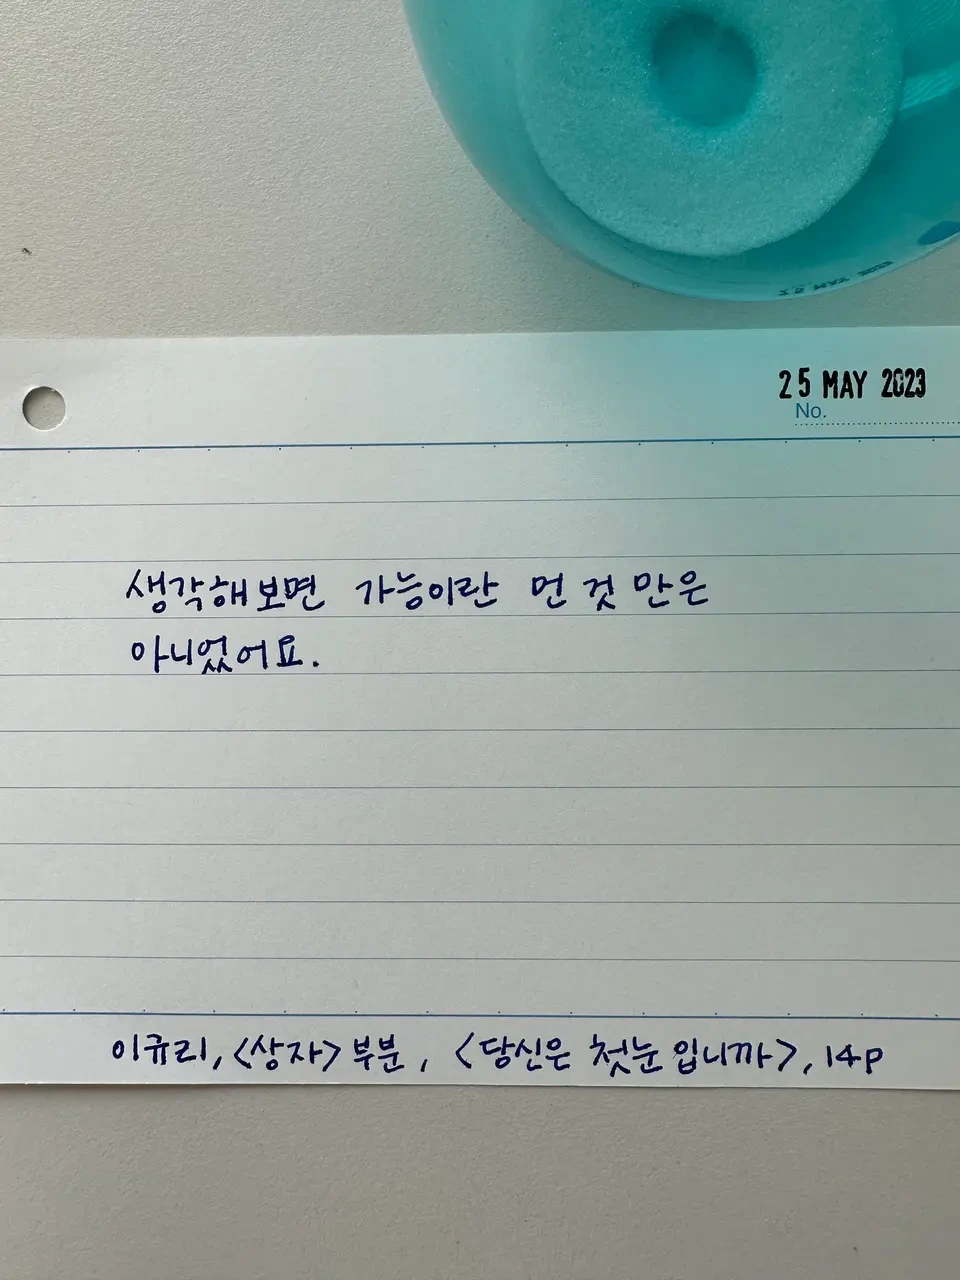 25 MAY 2023
No.
생각해보면 가능이란 먼 것 만은
아니었어요.
이규리, <상자> 부분, <당신은 첫눈입니까>, 14p